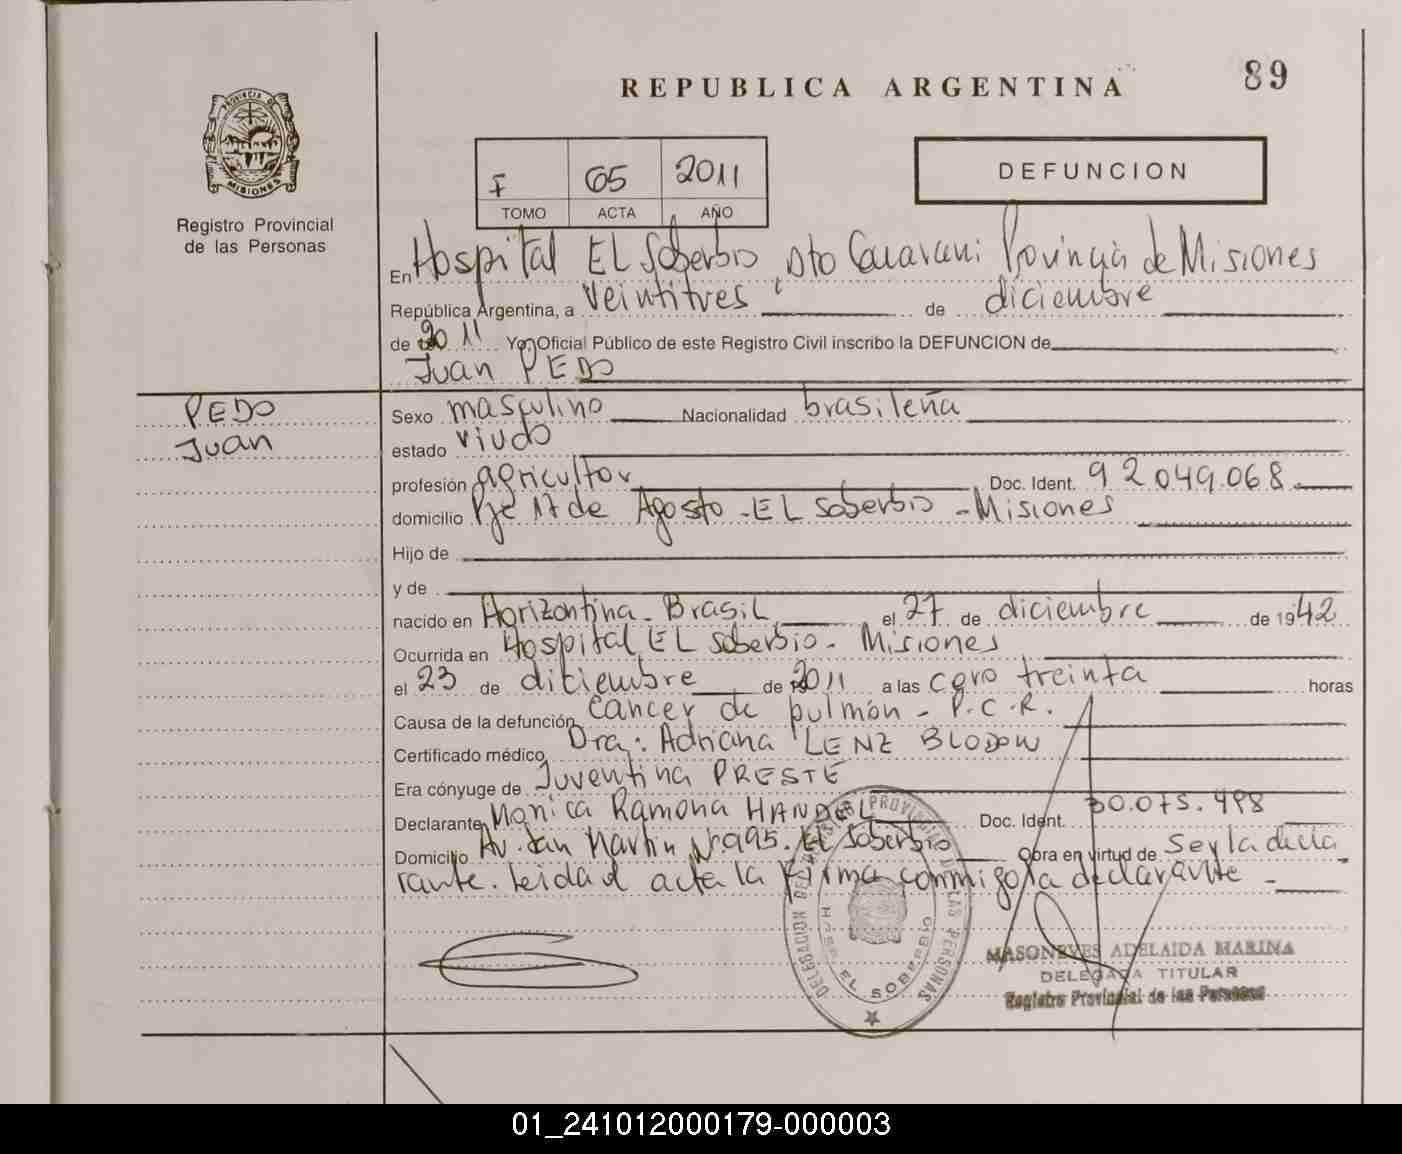 REPUBLICA ARGENTINA
89
PROVINCIA DE MISIONES
Registro Provincial
de las Personas
I 65 2011
TOMO ACTA AÑO
DEFUNCION
En Hospital EL Soberbio, Dto Guarani Provincia de Misiones
República Argentina, a veintitres de diciembre
de 2011 Yo, Oficial Público de este Registro Civil inscribo la DEFUNCION de
Juan PEDO
PEDO
Juan
Sexo masculino Nacionalidad brasileña
estado viudo
profesión agricultor Doc. Ident. 92.049.068
domicilio Pje 17 de Agosto - EL Soberbio - Misiones
Hijo de
y de
nacido en Horizontina - Brasil el 27 de diciembre de 1942
Ocurrida en Hospital EL Soberbio - Misiones
el 23 de diciembre de 2011 a las cero treinta horas
Causa de la defunción cancer de pulmón - P.C.R.
Certificado médico Dra: Adriana LENZ BLODOW
Era cónyuge de Juventina PRESTE
Declarante Monica Ramona HANDEL Doc. Ident. 30.075.498
Domicilio Av. San Martin Nº 995. El Soberbio Obra en virtud de Ser la decla
rante. Leida el acta la firma conmigo la declarante -
DELEGACION DEL REGISTRO PROVINCIAL DE LAS PERSONAS
EL SOBERBIO
MASONEVES ADELAIDA MARINA
DELEGADA TITULAR
Registro Provincial de las Personas
01_241012000179-000003